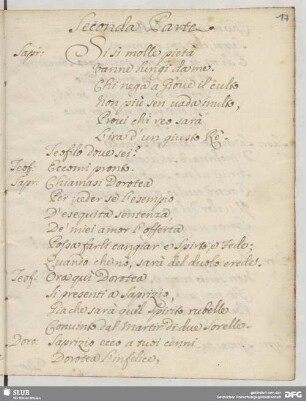 17
Seconda Parte
Sapr: Si si molle pietà
Vanne lungi da me.
Chi nega a Giove il culto
Non più sen vada inulto,
Provi chi reo sarà
L'ira d'un giusto Rè.
Teofilo dove sei?
Teof: Eccomi pronto.
Sapr: Chiamasi Dorotea
Per veder se l'esempio
D'eseguita sentenza,
De' miei amor l'offerta
Possa farli cangiar e Spirto, e Fede;
Quando che nò, sarà del duolo erede.
Teof: Ora quì Dorotea
Si presenti a Saprizio,
Già che sarà quel Spirito rubelle
Convinto dal Martir di due Sorelle.
Doro: Saprizio ecco a tuoi cenni
Dorotea l'infelice,
SLUB
Wir führen Wissen.
gefördert von der
Deutschen Forschungsgemeinschaft
DFG